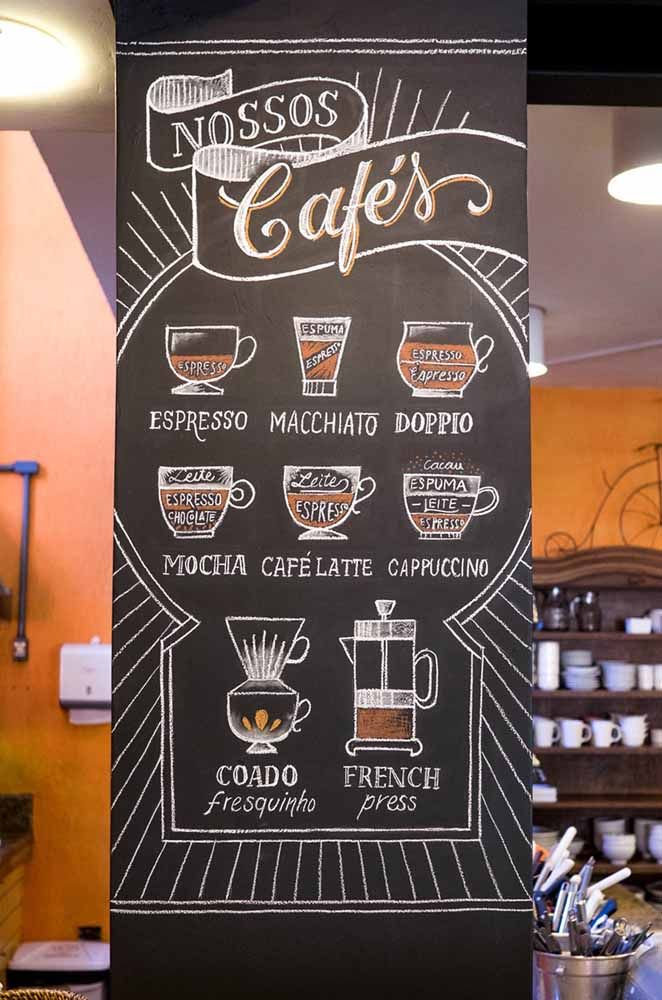 NOSSOS
Cafés
ESPRESSO
ESPRESSO
ESPUMA
ESPRESSO
MACCHIATO
ESPRESSO
Espresso
DOPPIO
Leite
ESPRESSO
CHOCOLATE
MOCHA
Leite
ESPRESSO
CAFÉ LATTE
Cacau
ESPUMA
LEITE
ESPRESSO
CAPPUCCINO
COADO
fresquinho
FRENCH
press